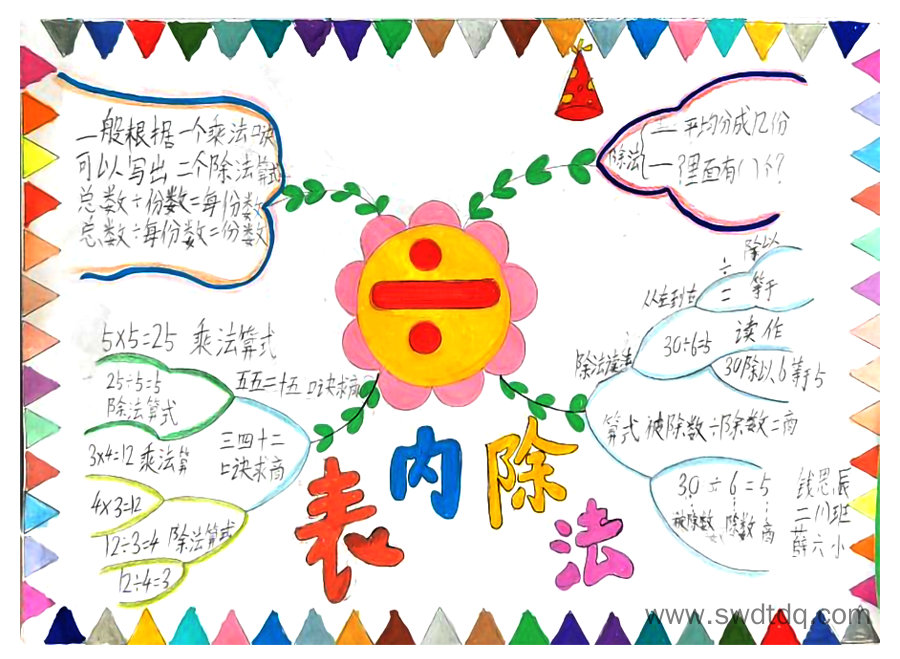 一般根据一个乘法口诀
可以写出二个除法算式
总数÷份数=每份数
总数÷每份数=份数
除法
一 平均分成几份
一 ?里面有( )个?
5×5=25 乘法算式
25÷5=5
除法算式
五五二十五 口诀求商
3×4=12 乘法算
三四十二
口诀求商
4×3=12
12÷3=4 除法算式
12÷4=3
表内除法
除法读法
从左到右
÷ 除以
= 等于
30÷6=5 读作
30除以6等于5
算式 被除数÷除数=商
30÷6=5
被除数 除数 商
钱思辰
二川班
薛六小
www.swdtdq.com